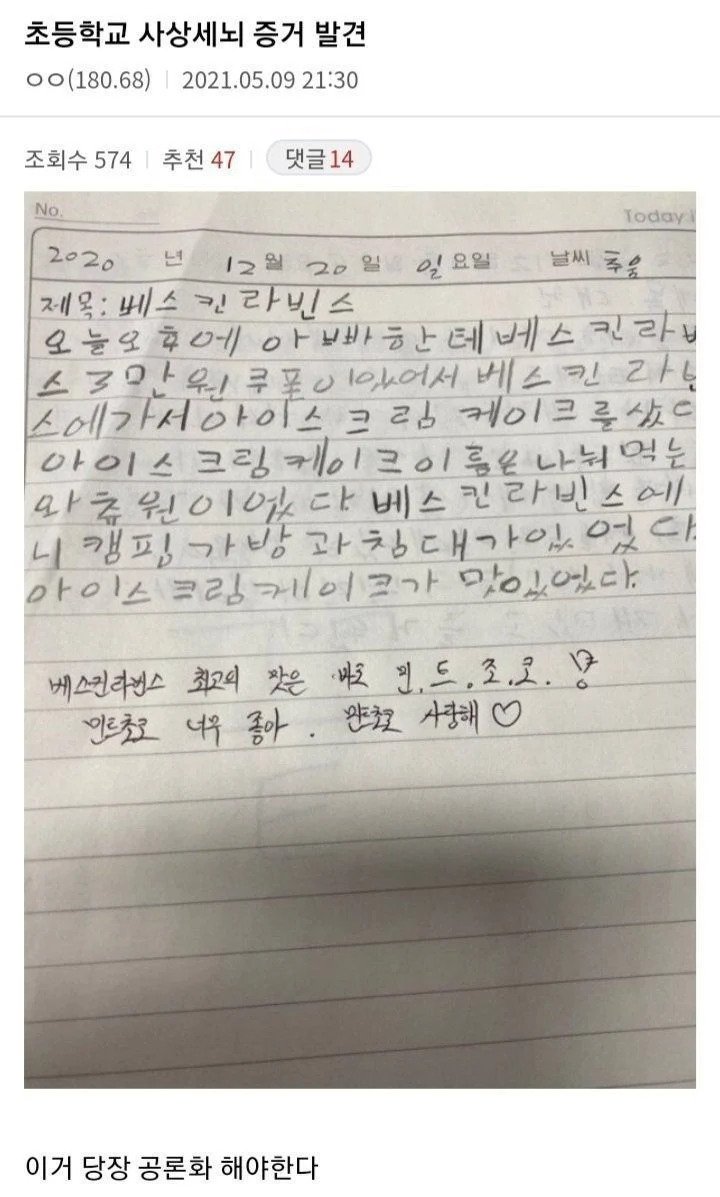 초등학교 사상세뇌 증거 발견
ㅇㅇ(180.68) | 2021.05.09 21:30
조회수 574 | 추천 47 | 댓글 14
No. Today i
2020 년 12월 20일 일요일 날씨 추움
제목: 베스킨라빈스
오늘오후에 아빠한테베스킨라
스3만원쿠폰이있어서 베스킨라
스에가서아이스크림케이크를샀다
아이스크림케이크이름은나눠먹는
와츄원이었다 베스킨라빈스에
니캠핑가방과침대가있었다.
아이스크림케이크가 맛있었다.
베스킨라빈스 최고의 맛은 바로 민.트.초.코.
민트초코 너무 좋아. 민트초코 사랑해♡
이거 당장 공론화 해야한다